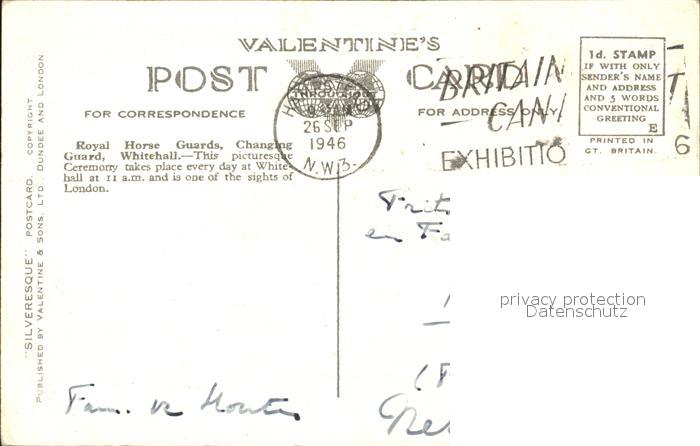 VALENTINE'S
POST CARD
THROUGHOUT
FOR CORRESPONDENCE
FOR ADDRESS ONLY
1d. STAMP
IF WITH ONLY
SENDER'S NAME
AND ADDRESS
AND 5 WORDS
CONVENTIONAL
GREETING
E
PRINTED IN
GT. BRITAIN.
26 SEP
1946
N.W.3.
BRITAIN
CAN
EXHIBITIO
Royal Horse Guards, Changing
Guard, Whitehall.—This picturesque
Ceremony takes place every day at White-
hall at 11 a.m. and is one of the sights of
London.
"SILVERESQUE" POSTCARD. COPYRIGHT.
PUBLISHED BY VALENTINE & SONS, LTD., DUNDEE AND LONDON.
en Fa
privacy protection
Datenschutz
Fam.